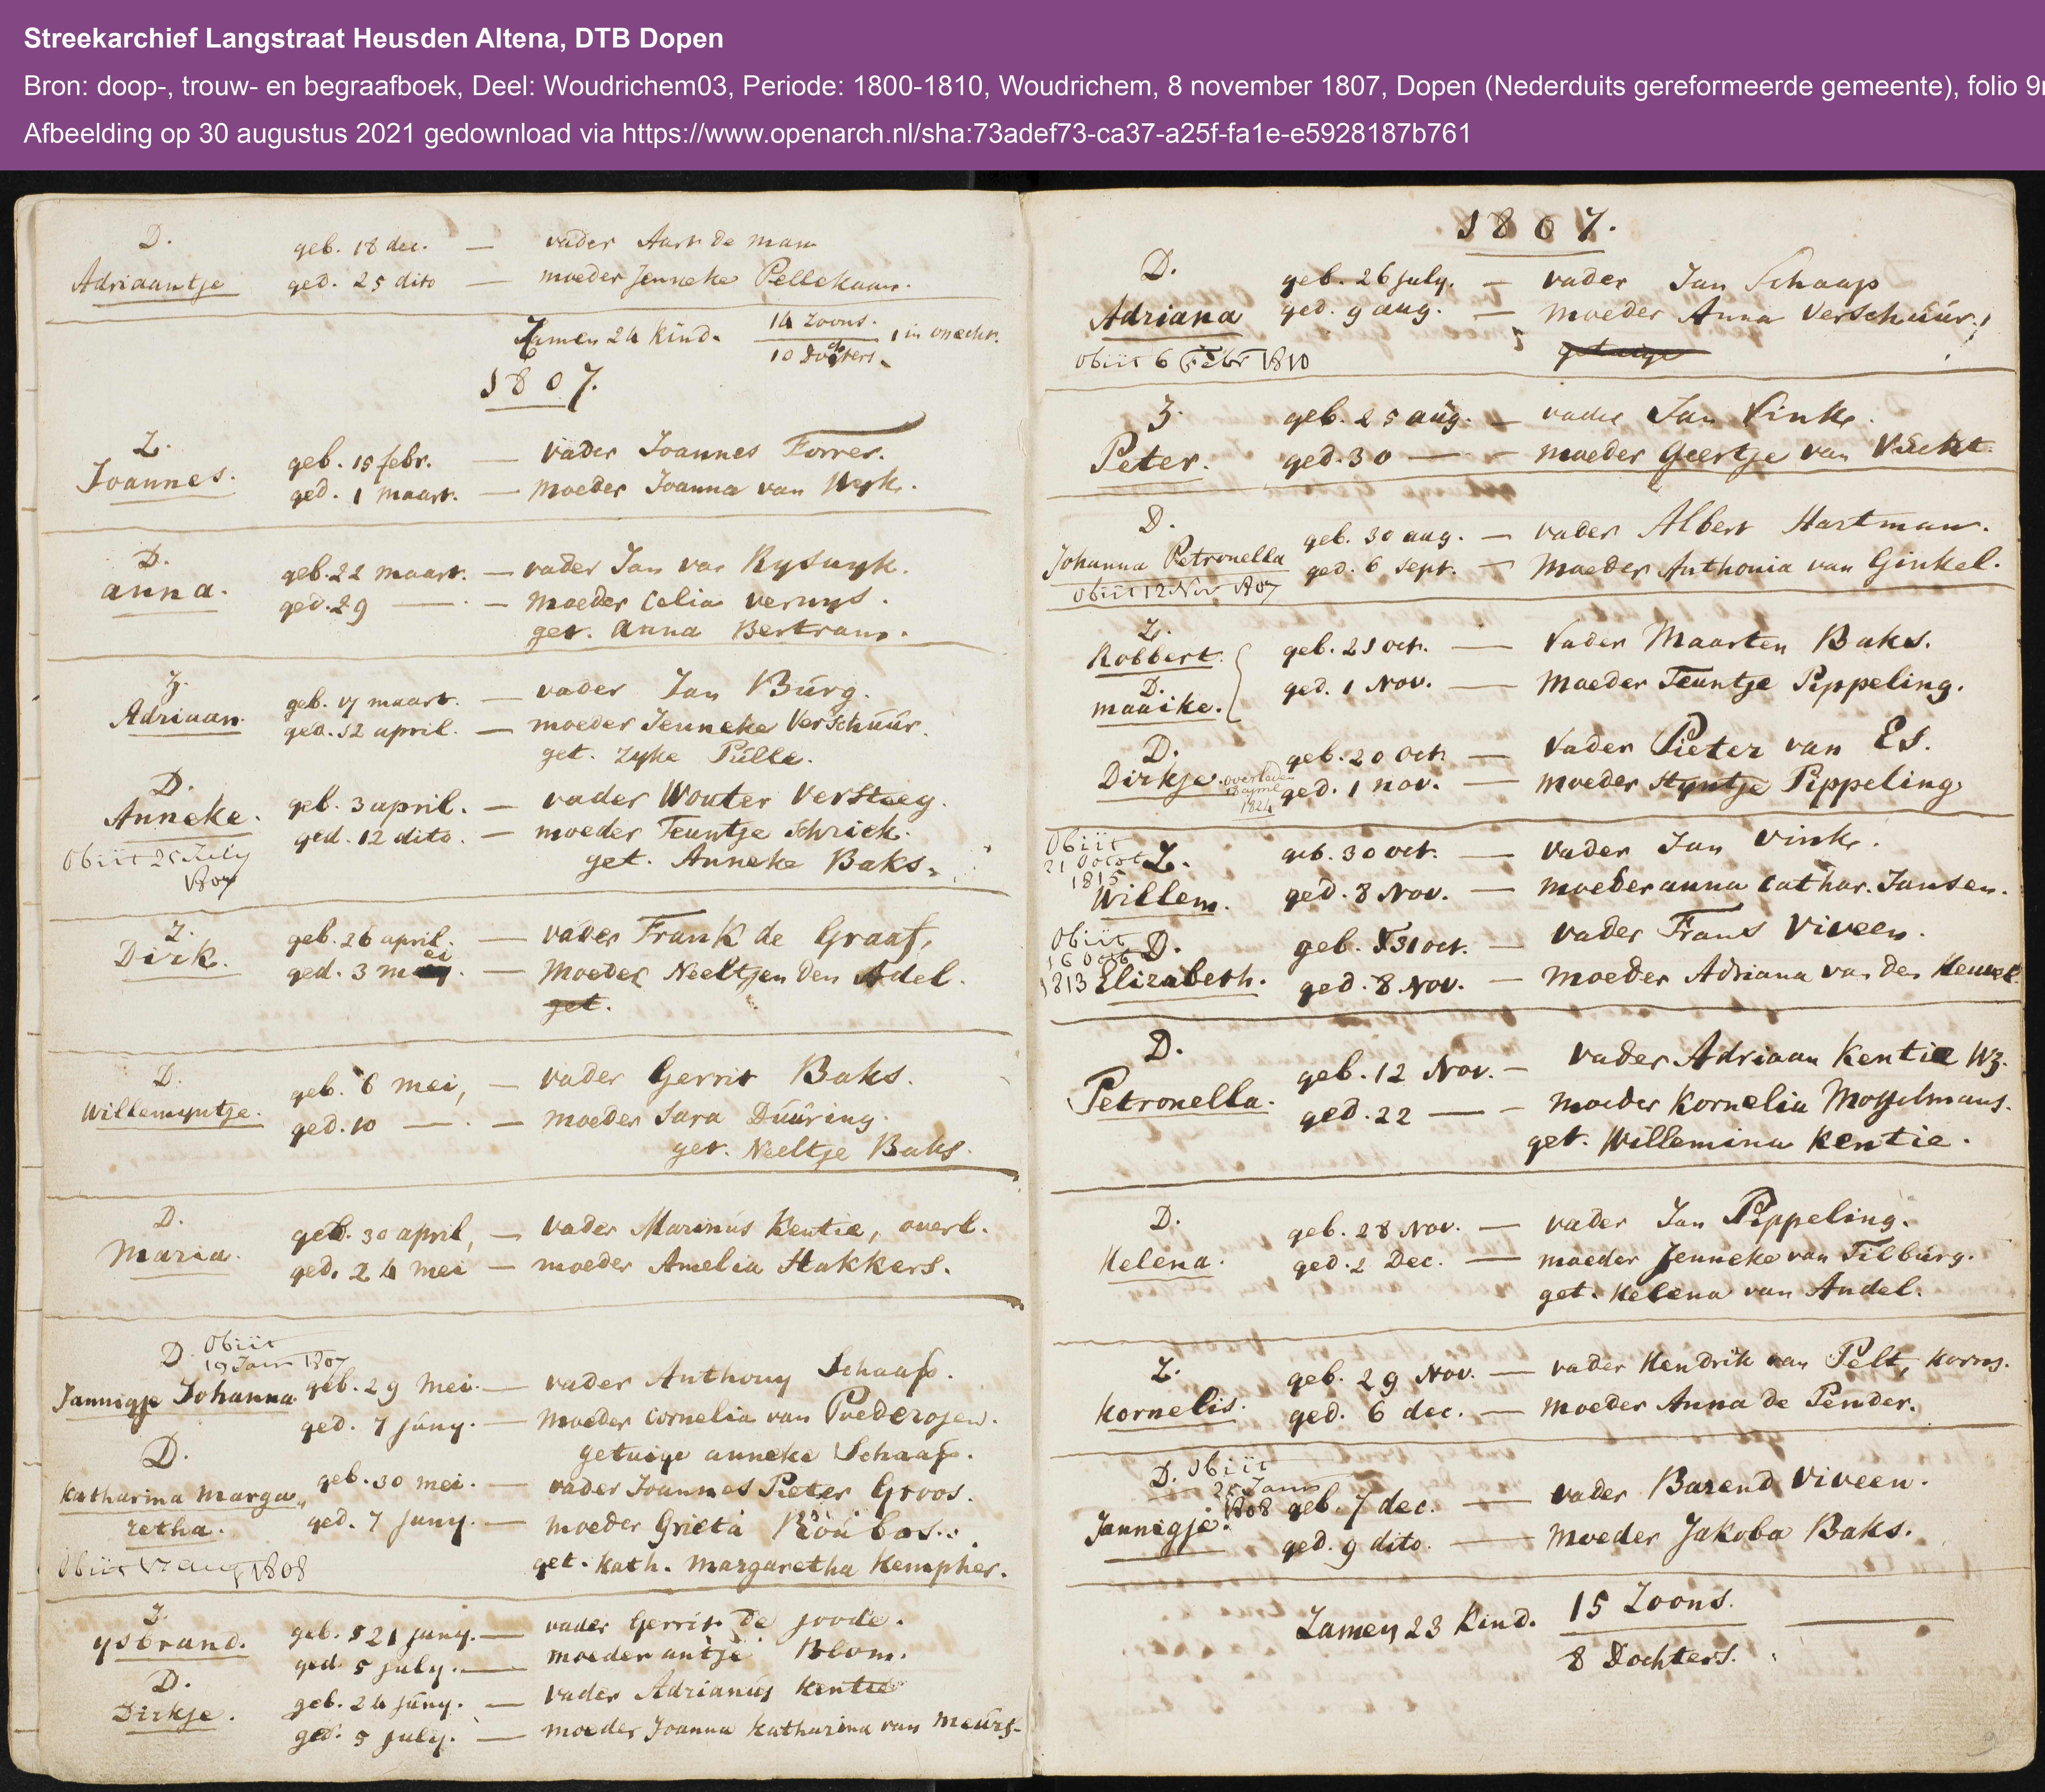 Streekarchief Langstraat Heusden Altena, DTB Dopen
Bron: doop-, trouw- en begraafboek, Deel: Woudrichem03, Periode: 1800-1810, Woudrichem, 8 november 1807, Dopen (Nederduits gereformeerde gemeente), folio 9r
Afbeelding op 30 augustus 2021 gedownload via https://www.openarch.nl/sha:73adef73-ca37-a25f-fa1e-e5928187b761
D. geb. 18 dec. — vader Aart de Man
Adriaantje ged. 25 dito — moeder Jenneke Pellekaan.
Zamen 24 kind. 14 Zoons. 1 in onecht.
10 Dochters.
1807.
Z. geb. 15 febr. — vader Joannes Forrer.
Joannes. ged. 1 maart. — moeder Joanna van Wyk.
D. geb. 22 maart. — vader Jan van Ryswyk.
anna. ged. 29 — — moeder Celia verwys.
get. Anna Bertram.
Z. geb. 17 maart. — vader Jan Burg.
Adriaan. ged. 12 april. — moeder Jenneke Verschuur.
get. Zyke Pulle.
D. geb. 3 april. — vader Wouter Versteeg.
Anneke. ged. 12 dito. — moeder Teuntje Schriek.
Obiit 25 July get. Anneke Baks.
1807
Z. geb. 26 april. — vader Frank de Graaf,
Dirk. ged. 3 mei. — Moeder Neeltjen den Adel.
get.
D. geb. 6 mei, — vader Gerrit Baks.
Willemyntje. ged. 10 — — moeder Sara Duuring.
get. Neeltje Baks.
D. geb. 30 april, — vader Marinus Kentie, overl.
Maria. ged. 24 mei — moeder Amelia Hakkers.
D. Obiit
19 Juni 1807
Jannigje Johanna geb. 29 Mei. — vader Anthony Schaap.
ged. 7 juny. — moeder Cornelia van Poederojen.
D. getuige anneke Schaap.
Katharina Marga geb. 30 mei. — vader Joannes Pieter Groos.
retha. ged. 7 juny. — moeder Grieta
Obiit 17 aug 1808 get. Kath. Margaretha Kempher.
Z. geb. 21 juny. — vader Gerrit de joode.
ysbrand. ged. 5 july. — moeder antje Blom.
D. geb. 24 juny. — vader Adrianus Kentie
Dirkje. ged. 5 july. — moeder Joanna Katharina van Meurs.
1807.
D. geb. 26 july. — vader Jan Schaap
Adriana ged. 9 aug. — moeder Anna Verschuur.
Obiit 6 Febr 1810 getuige
Z. geb. 25 aug. — vader Jan Vink.
Peter. ged. 30 — — moeder Geertje van Vucht.
D. geb. 30 aug. — vader Albert Hartman.
Johanna Petronella ged. 6 sept. — Moeder Anthonia van Ginkel.
obiit 12 Nov 1807
Z.
Robbert. geb. 21 oct. — Vader Maarten Baks.
D. ged. 1 Nov. — Moeder Teuntje Pippeling.
maaike.
D. geb. 20 Oct. — Vader Pieter van Es.
Dirkje. overleden ged. 1 nov. — moeder Styntje Pippeling.
1824
Obiit
21 Octob
1815
Z. geb. 30 oct. — vader Jan Vink.
Willem. ged. 8 Nov. — moeder anna Cathar. Jansen.
Obiit
16 Octob
1813
D. geb. 31 oct. — vader Frans Viveen.
Elizabeth. ged. 8 Nov. — moeder Adriana van den Heuvel.
D. geb. 12 Nov. — vader Adriaan Kentie Wz.
Petronella. ged. 22 — — moeder Kornelia Mosselmans.
get. Willemina Kentie.
D. geb. 28 Nov. — vader Jan Pippeling.
Helena. ged. 2 Dec. — moeder Jenneke van Tilburg.
get. Helena van Andel.
Z. geb. 29 Nov. — vader Hendrik van Pelt, Korns.
Kornelis. ged. 6 dec. — moeder Anna de Pender.
D. Obiit
25 Janu
1808
geb. 7 dec. — vader Barend Viveen.
Jannigje. ged. 9 dito. — moeder Jakoba Baks.
Zamen 23 Kind. 15 Zoons.
8 Dochters.
9